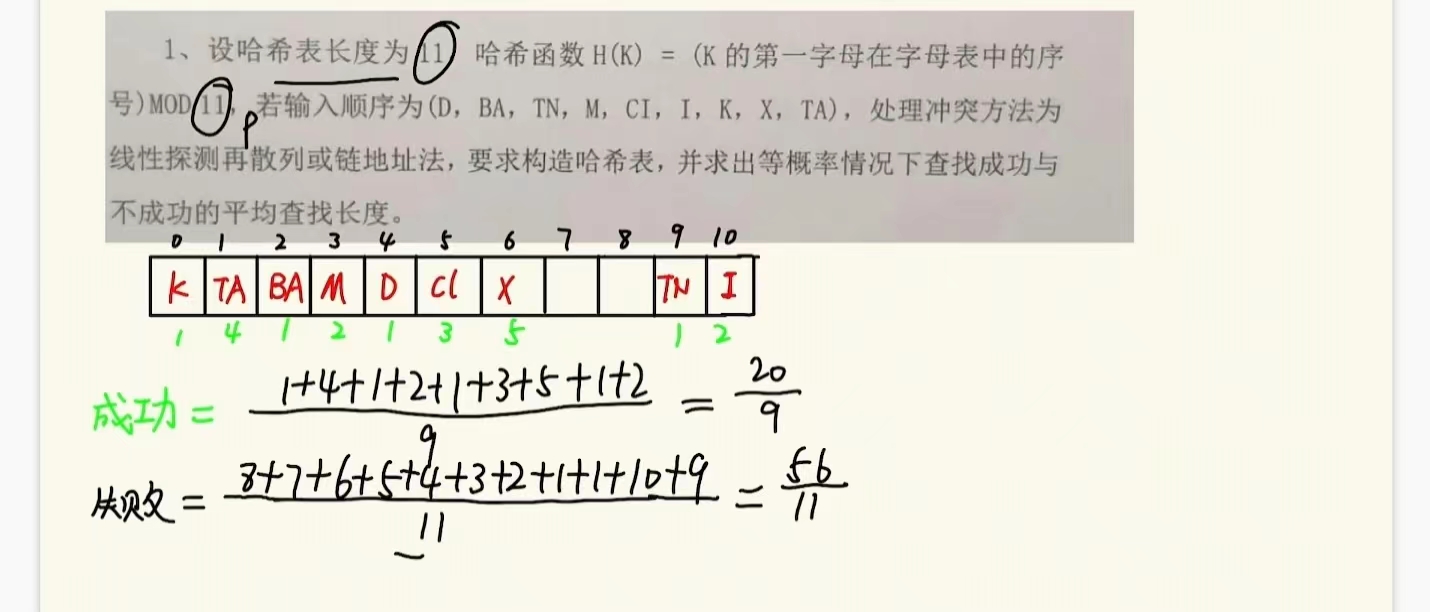 1、设哈希表长度为11 哈希函数 H(K) = (K 的第一字母在字母表中的序
号)MOD 11, 若输入顺序为(D, BA, TN, M, CI, I, K, X, TA), 处理冲突方法为
p
线性探测再散列或链地址法, 要求构造哈希表, 并求出等概率情况下查找成功与
不成功的平均查找长度。
0 1 2 3 4 5 6 7 8 9 10
K TA BA M D CI X TN I
1 4 1 2 1 3 5 1 2
成功 = 1+4+1+2+1+3+5+1+2 / 9 = 20 / 9
失败 = 8+7+6+5+4+3+2+1+1+10+9 / 11 = 56 / 11